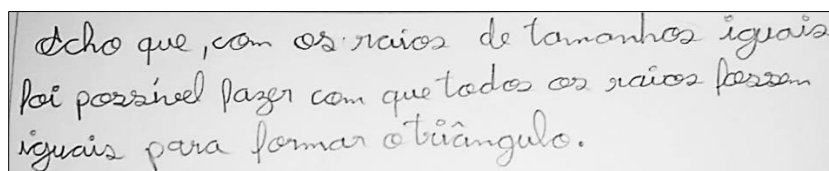 Acho que, com os raios de tamanhos iguais
foi possível fazer com que todos os raios fossem
iguais para formar o triângulo.